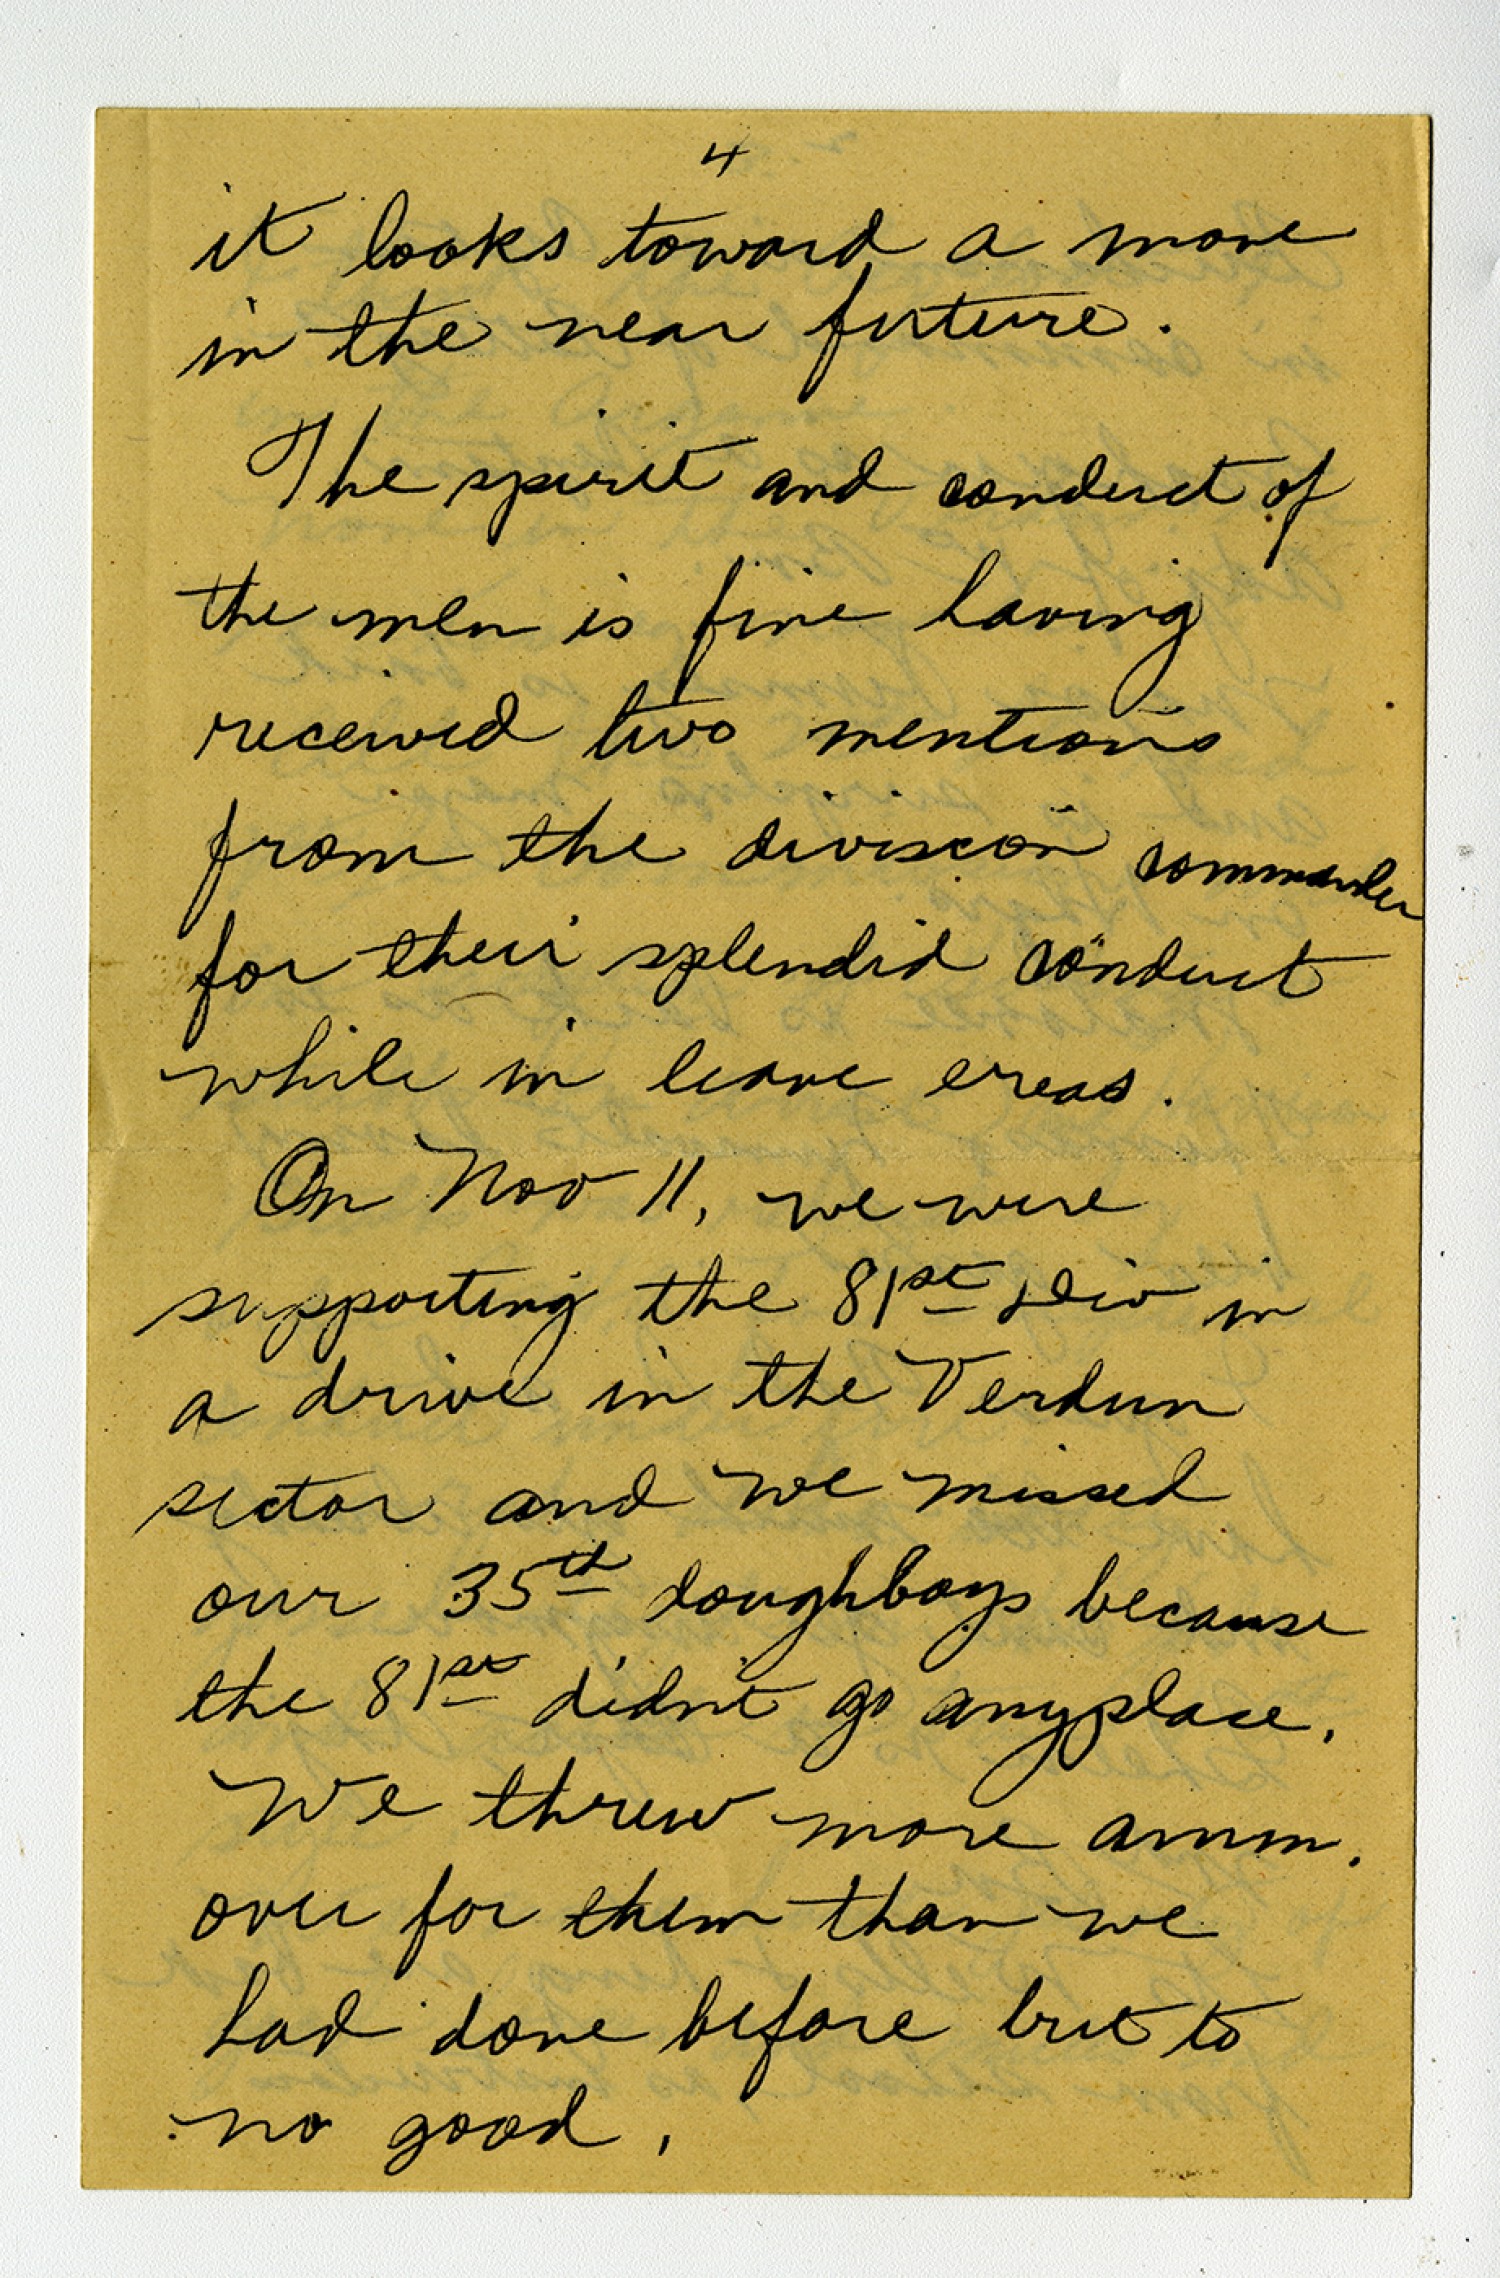 4
it looks toward a move
in the near future.
The spirit and conduct of
the men is fine having
received two mentions
from the division commander
for their splendid conduct
while in leave ereas.
On Nov 11, we were
supporting the 81st Div in
a drive in the Verdun
sector and we missed
our 35th doughboys because
the 81st didn't go anyplace.
We threw more amm.
over for them than we
had done before but to
no good.